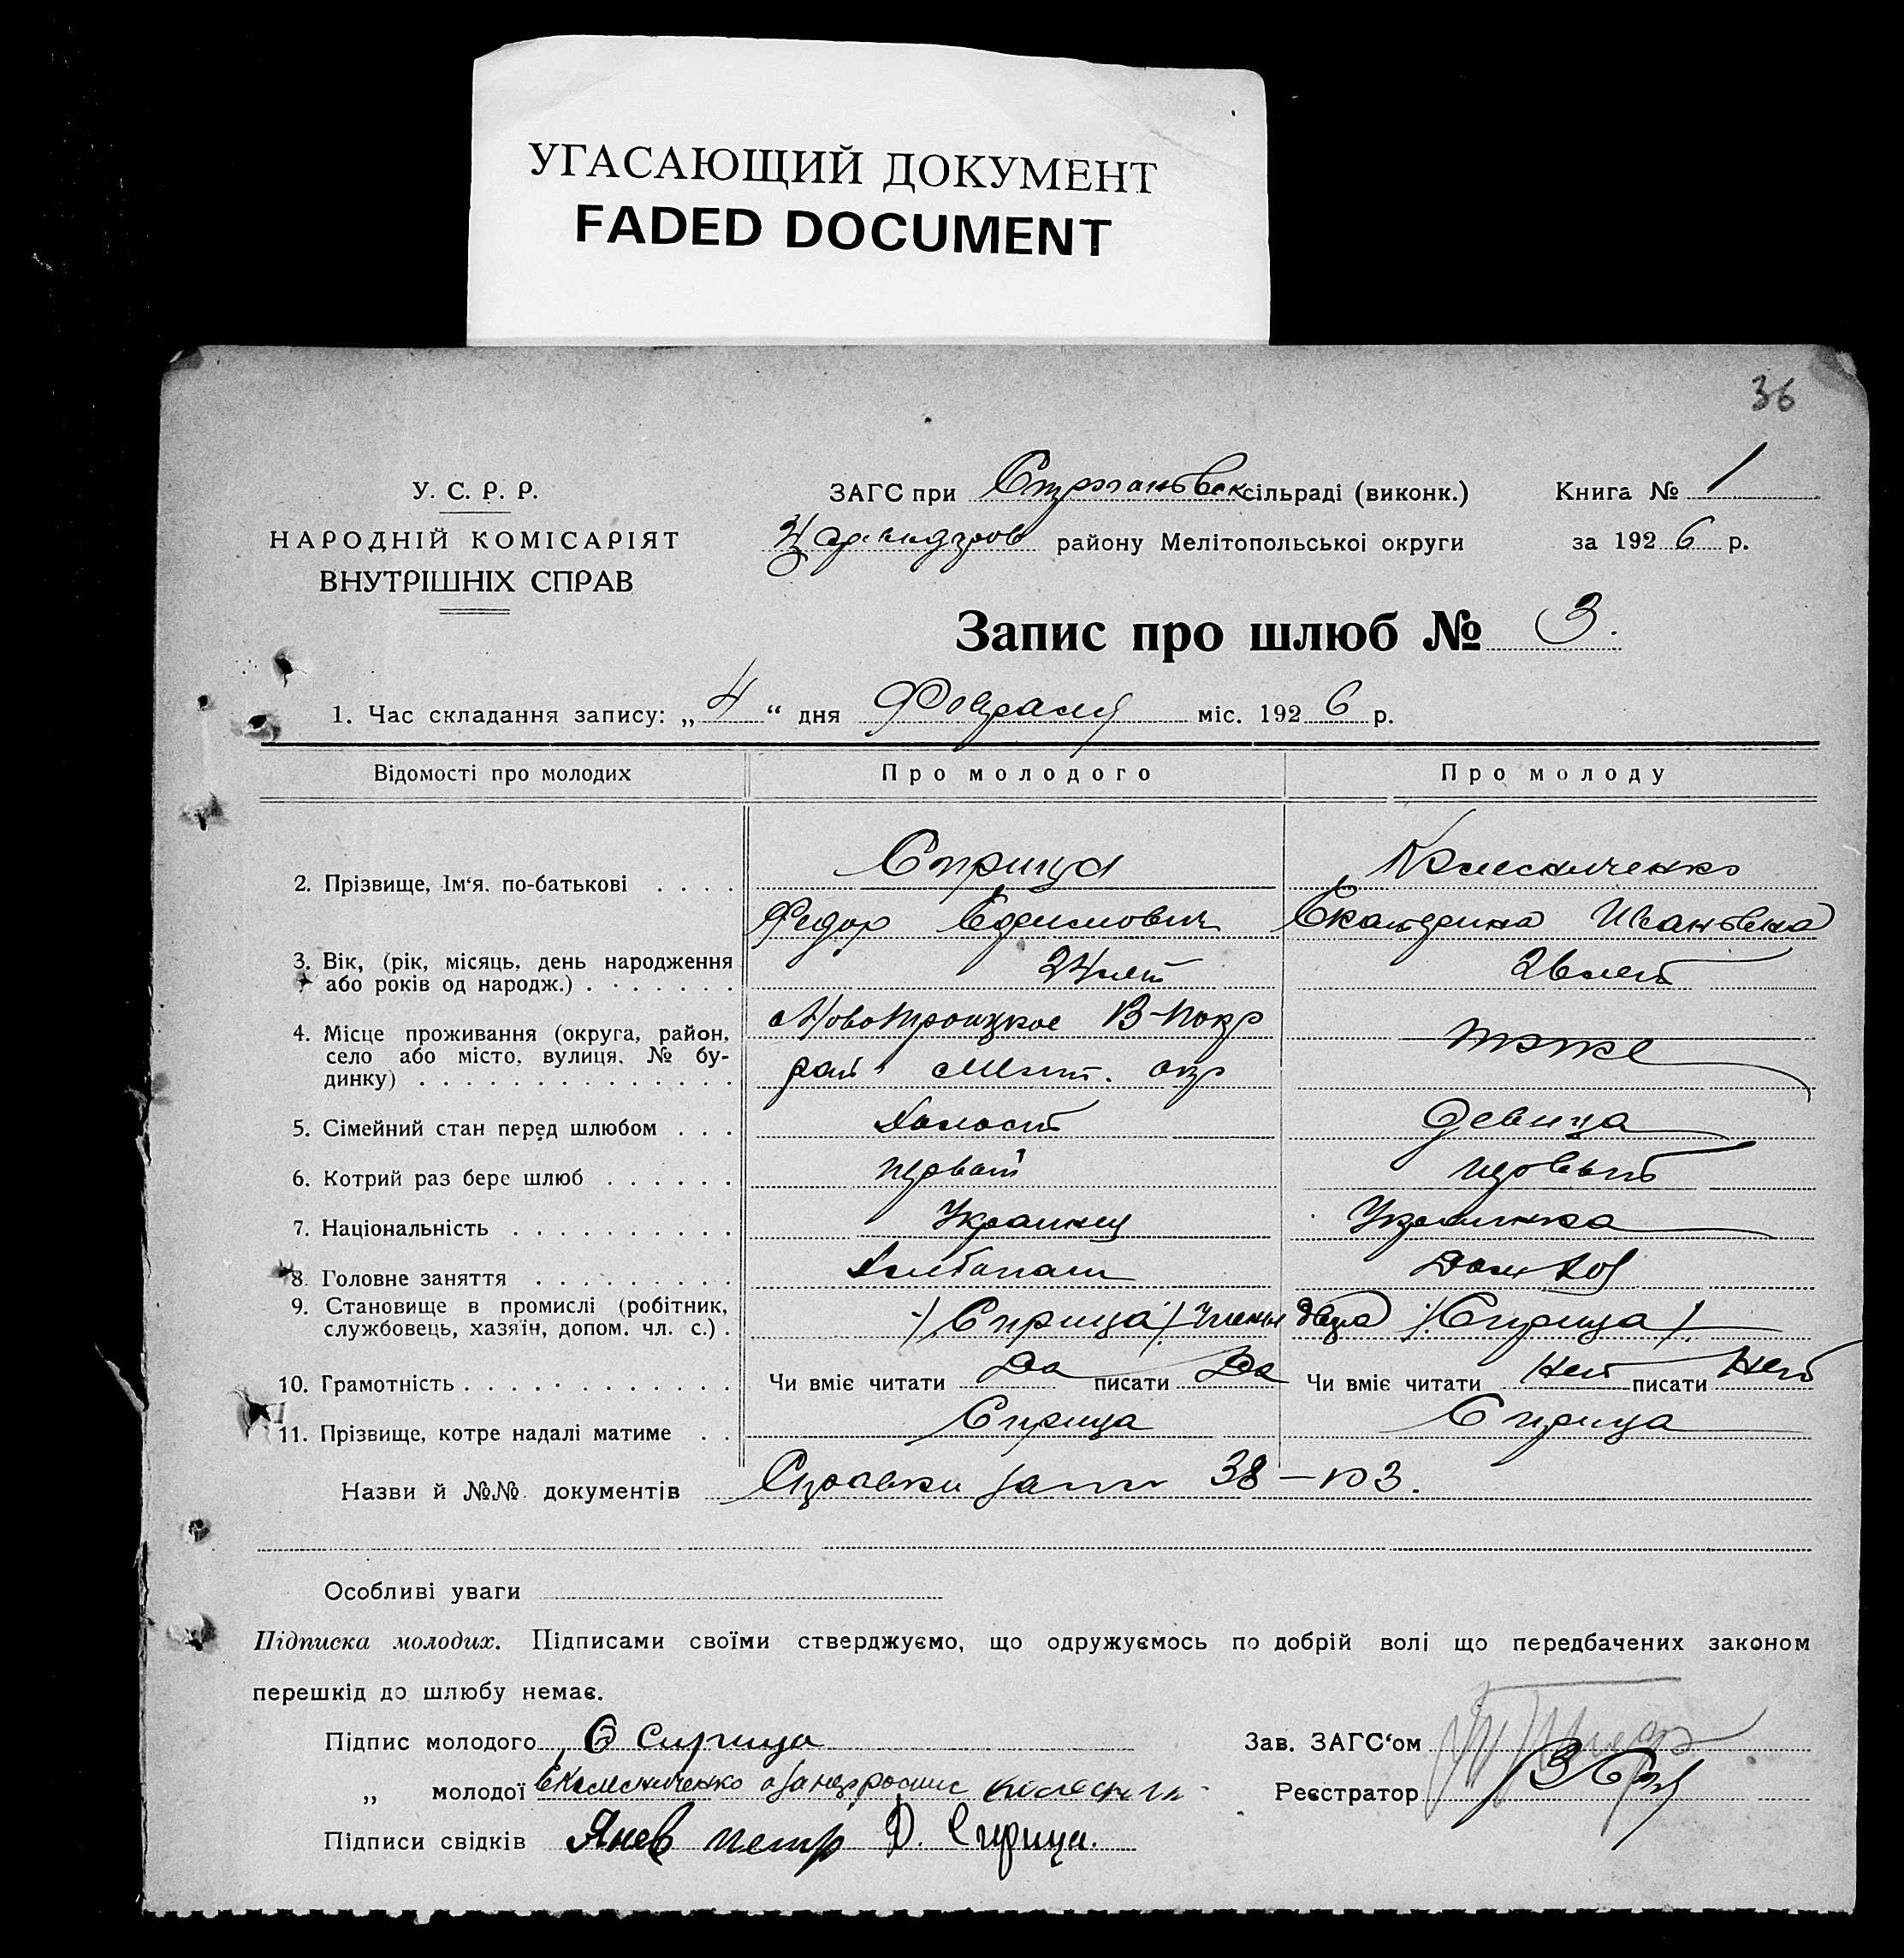 УГАСАЮЩИЙ ДОКУМЕНТ
FADED DOCUMENT
36
У. С. Р. Р.
НАРОДНІЙ КОМІСАРІЯТ
ВНУТРІШНІХ СПРАВ
ЗАГС при сільраді (виконк.) Книга № 1
району Мелітопольської округи за 1926 р.
Запис про шлюб № 3.
1. Час складання запису: „4“ дня Февраля міс. 1926 р.
Відомості про молодих Про молодого Про молоду
2. Прізвище, Ім'я, по-батькові . . . . Сприца Колесниченко
Федор Ефимович Екатерина Ивановна
3. Вік, (рік, місяць, день народження
або років од народж.) . . . . . . . 24 лет
4. Місце проживання (округа, район,
село або місто, вулиця, № бу-
динку) . . . . . . . . . . . . . .
Новотроицкое В-Покр
рай Мелит. окр
тоже
5. Сімейний стан перед шлюбом . . . Холост Девица
6. Котрий раз бере шлюб . . . . . . первый первый
7. Національність . . . . . . . . . . Украинец Украинка
8. Головне заняття . . . . . . . . . Хлебопаш Дом хоз
9. Становище в промислі (робітник,
службовець, хазяїн, допом. чл. с.) . /Сприца/ /Сприца/
10. Грамотність . . . . . . . . . . . . Чи вміє читати Да писати Да Чи вміє читати Нет писати Нет
11. Прізвище, котре надалі матиме . . Сприца Сприца
Назви й №№ документів Справки 38 – 103.
Особливі уваги
Підписка молодих. Підписами своїми стверджуємо, що одружуємось по добрій волі що передбачених законом
перешкід до шлюбу немає.
Підпис молодого Сприца Зав. ЗАГС'ом
„ молодої Е Колесниченко Реєстратор
Підписи свідків Янев петр